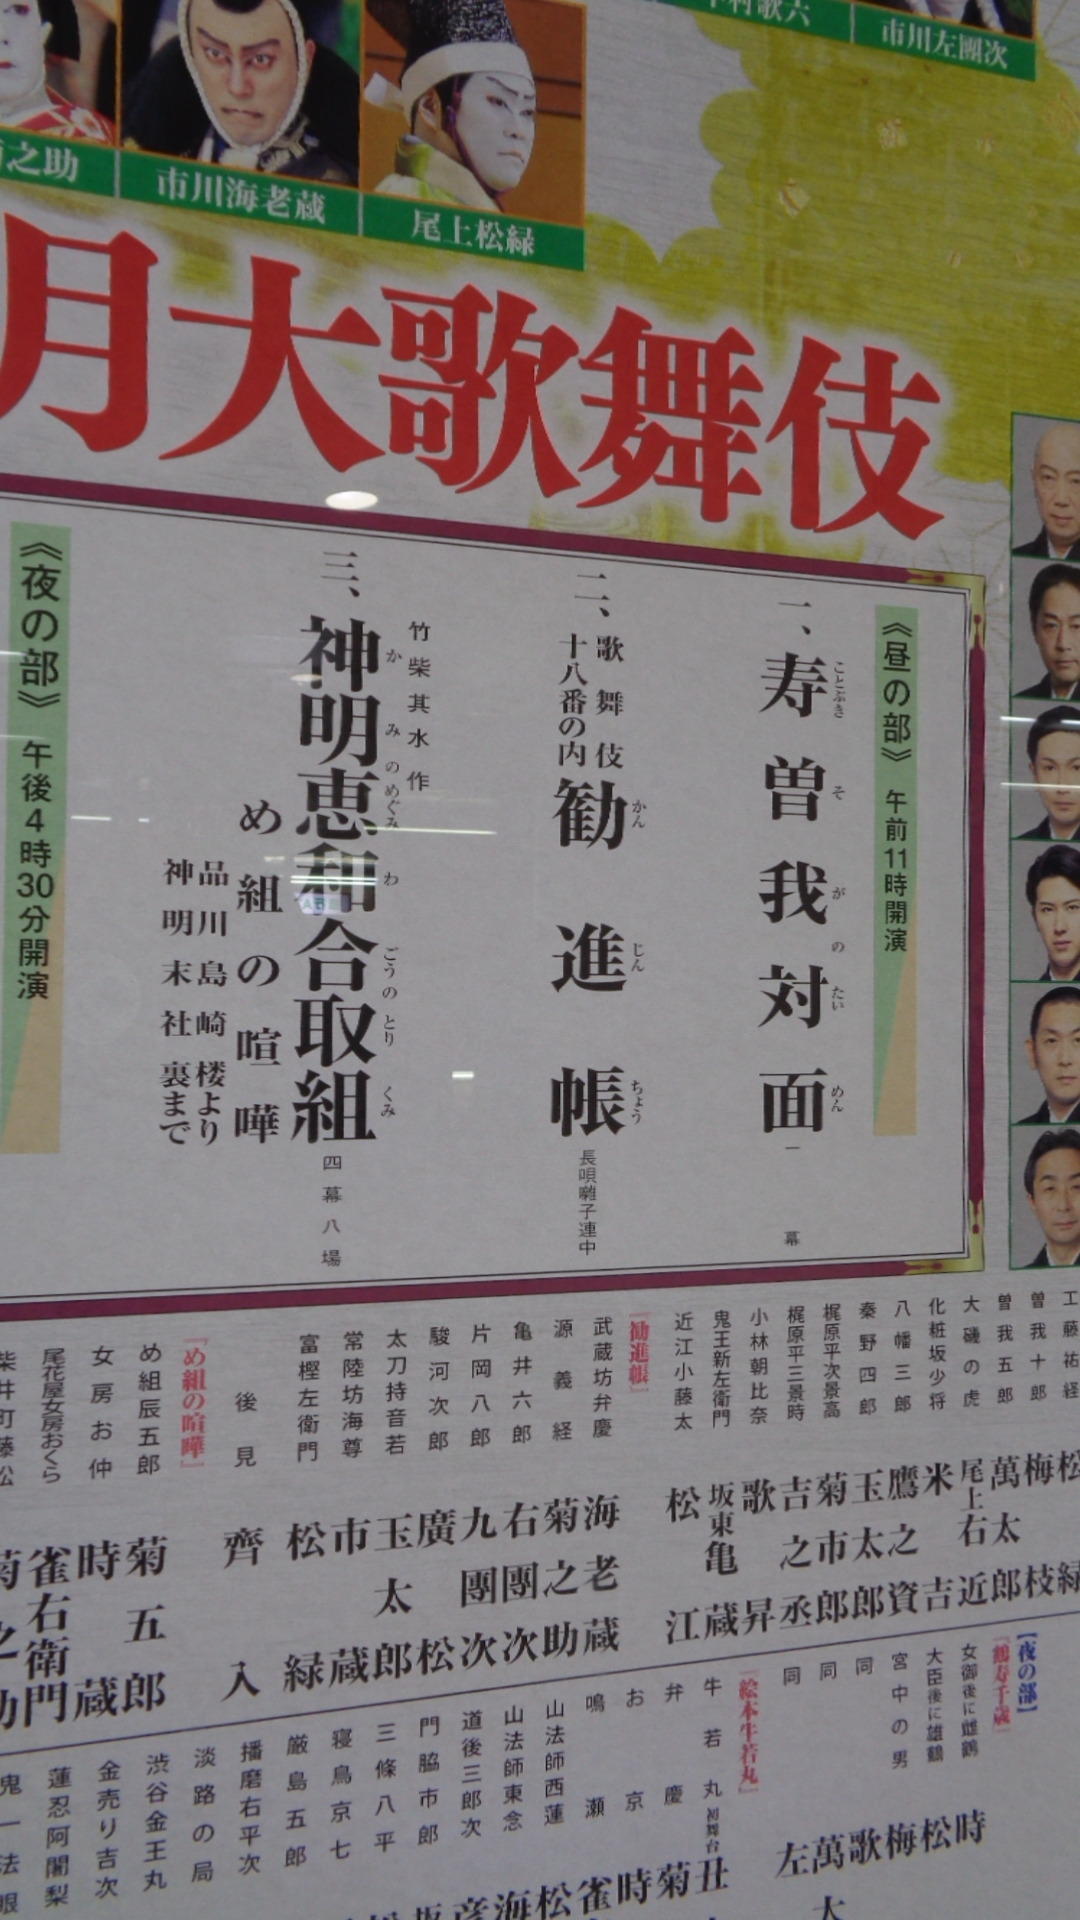 市川左團次
市川海老蔵
尾上松緑
月大歌舞伎
《昼の部》 午前11時開演
一、寿曽我対面 一幕
ことぶきそがのたいめん
二、歌舞伎十八番の内 勧進帳 長唄囃子連中
かんじんちょう
竹柴其水 作
三、神明恵和合取組 四幕八場
かみのめぐみわごうのとりくみ
め組の喧嘩
品川島崎楼より
神明末社裏まで
《夜の部》 午後4時30分開演
曽我十郎 梅枝
曽我五郎 萬太郎
大磯の虎 尾上右近
化粧坂少将 米吉
八幡三郎 鷹之資
秦野四郎 玉太郎
梶原平次景高 菊市郎
梶原平三景時 吉之丞
小林朝比奈 歌昇
鬼王新左衛門 坂東亀蔵
近江小藤太 松江
『勧進帳』
武蔵坊弁慶 海老蔵
源義経 菊之助
亀井六郎 右團次
片岡八郎 九團次
駿河次郎 廣松
太刀持音若 玉太郎
常陸坊海尊 市蔵
富樫左衛門 松緑
後見 齊入
『め組の喧嘩』
め組辰五郎 菊五郎
女房お仲 時蔵
尾花屋女房おくら 雀右衛門
柴井町藤松
【夜の部】
『鶴寿千歳』
女御後に雌鶴 時
大臣後に雄鶴 松
宮中の男 梅
同 歌
同 萬太
同 左
『絵本牛若丸』
牛若丸 初舞台 丑
弁慶 菊
お京 時
鳴瀬 雀
山法師西蓮 松
山法師東念 海
道後三郎次 彦
門脇市郎
三條八平
寝鳥京七
厳島五郎
播磨右平次
淡路の局
渋谷金王丸
金売り吉次
蓮忍阿闍梨
鬼一法眼